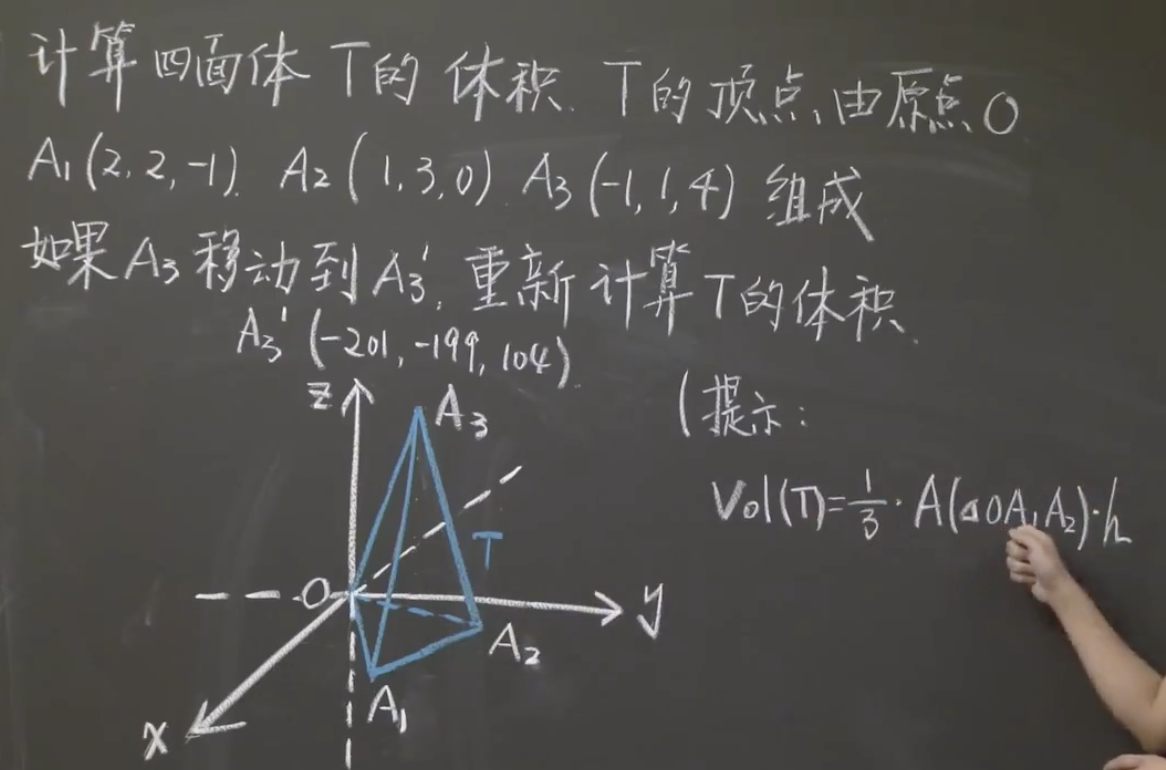 计算四面体 T的 体积. T的顶点由原点O
A₁(2,2,-1). A₂(1,3,0). A₃(-1,1,4) 组成
如果A₃移动到A₃'. 重新计算T的体积.
A₃'(-201,-199,104).
(提示:
Vol(T)=1/3·A(△OA₁A₂)·h
z
A₃
T
O
y
A₂
A₁
x